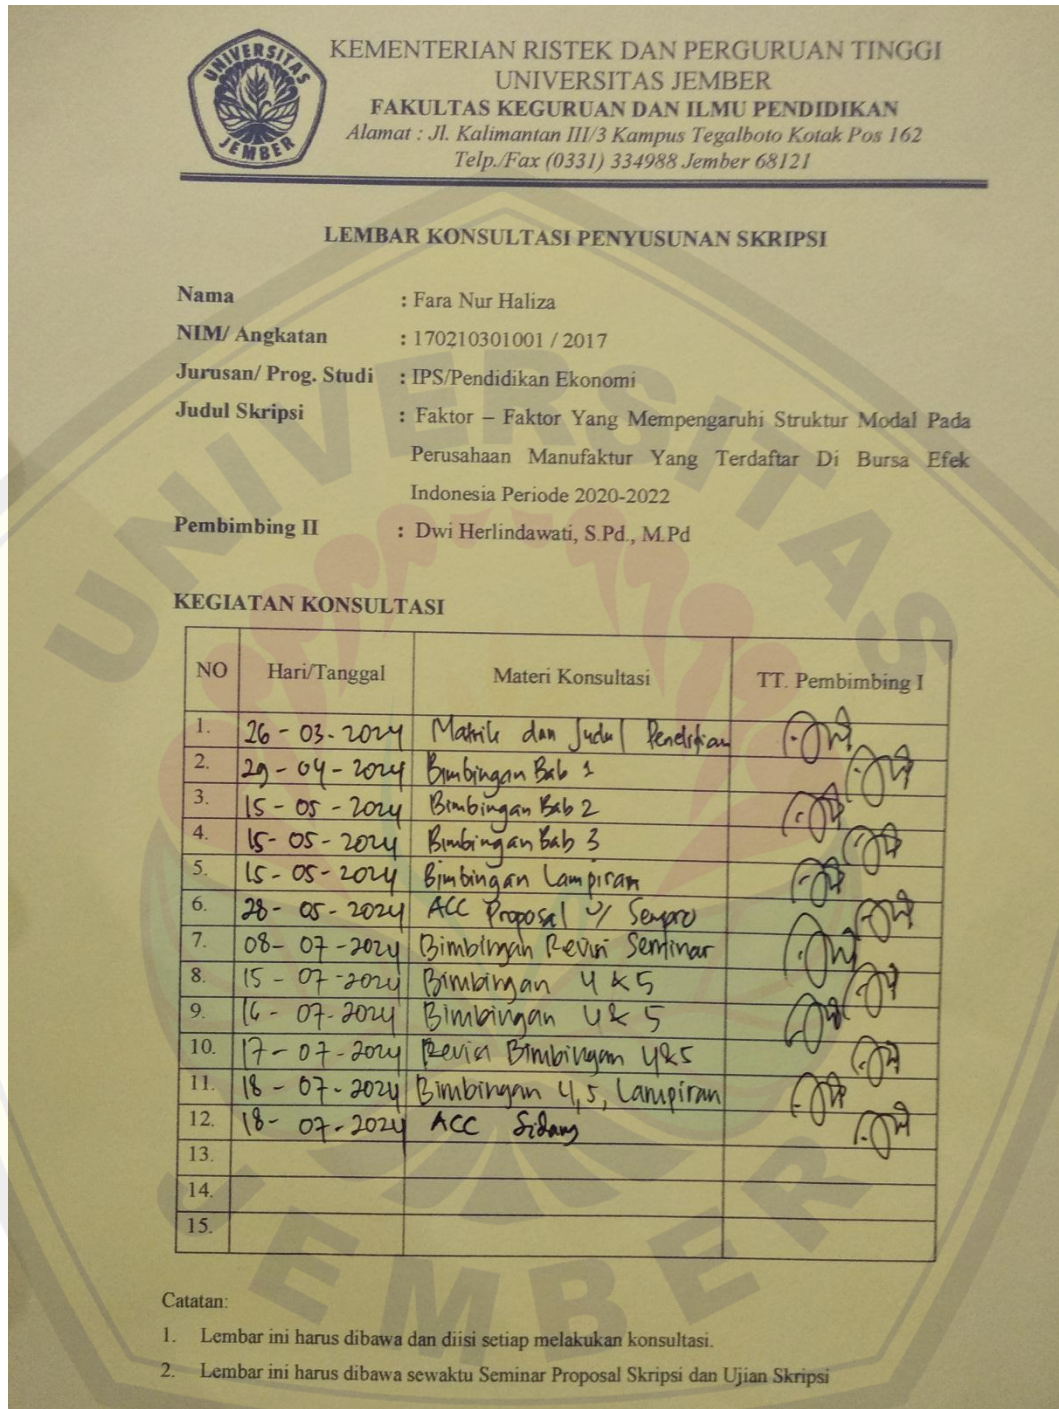 UNIVERSITAS JEMBER
KEMENTERIAN RISTEK DAN PERGURUAN TINGGI
UNIVERSITAS JEMBER
FAKULTAS KEGURUAN DAN ILMU PENDIDIKAN
Alamat : Jl. Kalimantan III/3 Kampus Tegalboto Kotak Pos 162
Telp./Fax (0331) 334988 Jember 68121
LEMBAR KONSULTASI PENYUSUNAN SKRIPSI
Nama : Fara Nur Haliza
NIM/ Angkatan : 170210301001 / 2017
Jurusan/ Prog. Studi : IPS/Pendidikan Ekonomi
Judul Skripsi : Faktor – Faktor Yang Mempengaruhi Struktur Modal Pada
Perusahaan Manufaktur Yang Terdaftar Di Bursa Efek
Indonesia Periode 2020-2022
Pembimbing II : Dwi Herlindawati, S.Pd., M.Pd
KEGIATAN KONSULTASI
NO Hari/Tanggal Materi Konsultasi TT. Pembimbing I
1. 26 - 03 - 2024 Matrik dan Judul Penelitian
2. 29 - 04 - 2024 Bimbingan Bab 1
3. 15 - 05 - 2024 Bimbingan Bab 2
4. 15 - 05 - 2024 Bimbingan Bab 3
5. 15 - 05 - 2024 Bimbingan Lampiran
6. 28 - 05 - 2024 ACC Proposal u/ Sempro
7. 08 - 07 - 2024 Bimbingan Revisi Seminar
8. 15 - 07 - 2024 Bimbingan 4 & 5
9. 16 - 07 - 2024 Bimbingan 4 & 5
10. 17 - 07 - 2024 Revisi Bimbingan 4&5
11. 18 - 07 - 2024 Bimbingan 4, 5, Lampiran
12. 18 - 07 - 2024 ACC Sidang
13.
14.
15.
Catatan:
1. Lembar ini harus dibawa dan diisi setiap melakukan konsultasi.
2. Lembar ini harus dibawa sewaktu Seminar Proposal Skripsi dan Ujian Skripsi
UNIVERSITAS JEMBER